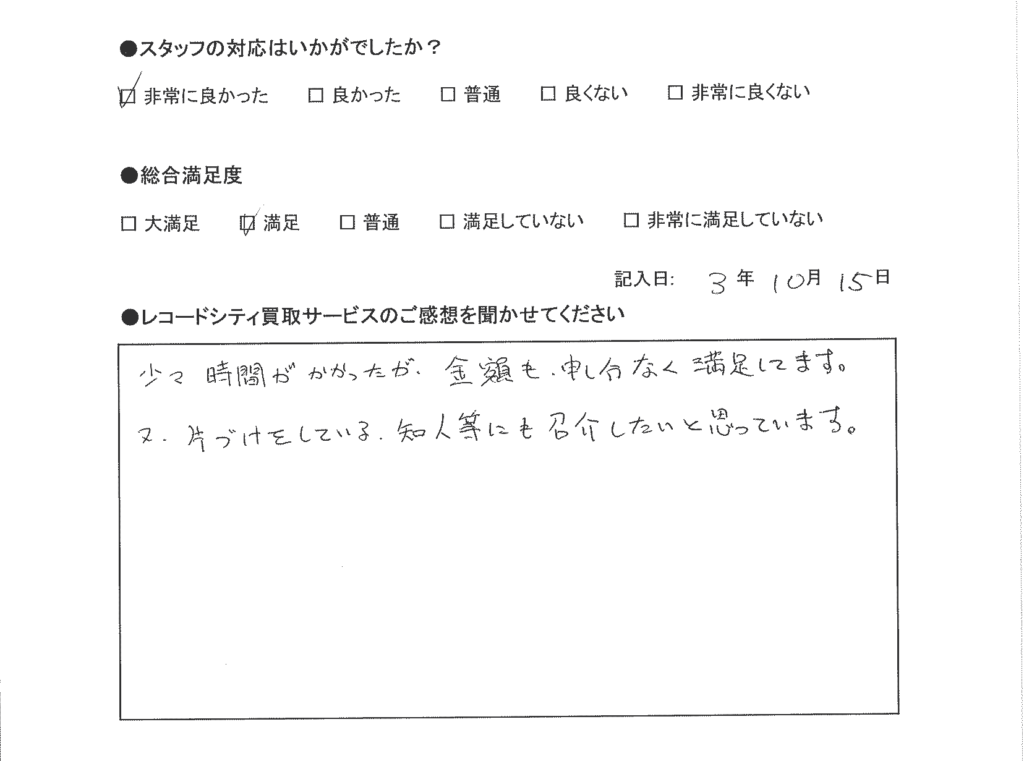 ●スタッフの対応はいかがでしたか？
☑ 非常に良かった □ 良かった □ 普通 □ 良くない □ 非常に良くない
●総合満足度
□ 大満足 ☑ 満足 □ 普通 □ 満足していない □ 非常に満足していない
記入日: 3 年 10 月 15 日
●レコードシティ買取サービスのご感想を聞かせてください
少々時間がかかったが、金額も、申し分なく満足してます。
又、片づけをしている、知人等にも召介したいと思っています。